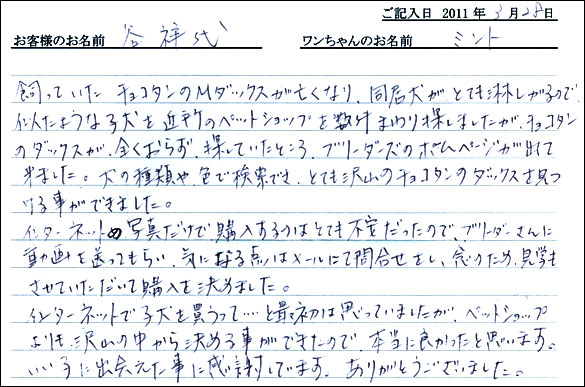 ご記入日 2011 年 3 月 28 日
お客様のお名前 谷 祥代 ワンちゃんのお名前 ミント
飼っていた チョコタンのMダックスが亡くなり、同居犬が とても淋しがるので
似たような子犬を近所のペットショップを数件まわり探しましたが、チョコタン
のダックスが、全くおらず 探していたところ、ブリーダーズのホームページが出て
来ました。犬の種類や、色で検索でき、とても沢山のチョコタンのダックスを見つ
ける事ができました。
インターネットの写真だけで購入するのはとても不安だったので、ブリーダーさんに
動画を送ってもらい、気になる点はメールにて問合せをし、念のため、見学も
させていただいて購入を決めました。
インターネットで子犬を買うって…と最初は思っていましたが、ペットショップ
よりも、沢山の中から決める事ができたので、本当に良かったと思います。
いい子に出会えた事に感謝しています。ありがとうございました。